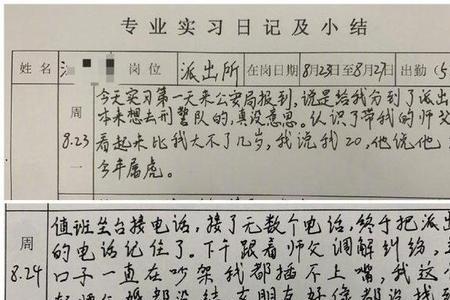 专业实习日记及小结
姓名 岗位 派出所 在岗日期 8月23日至8月27日 出勤(5
周一 8.23
今天实习第一天来公安局报到,说是给我分到了派出
本来想去刑警队的,真没意思。认识了带我的师父
看起来比我大不了几岁,我说我20,他说他
今年属虎。
周 8.24
值班坐台接电话,接了无数个电话,终于把派出
的电话记住了。下午跟着师父调解纠纷,
口子一直在吵架我都插不上嘴,我这个